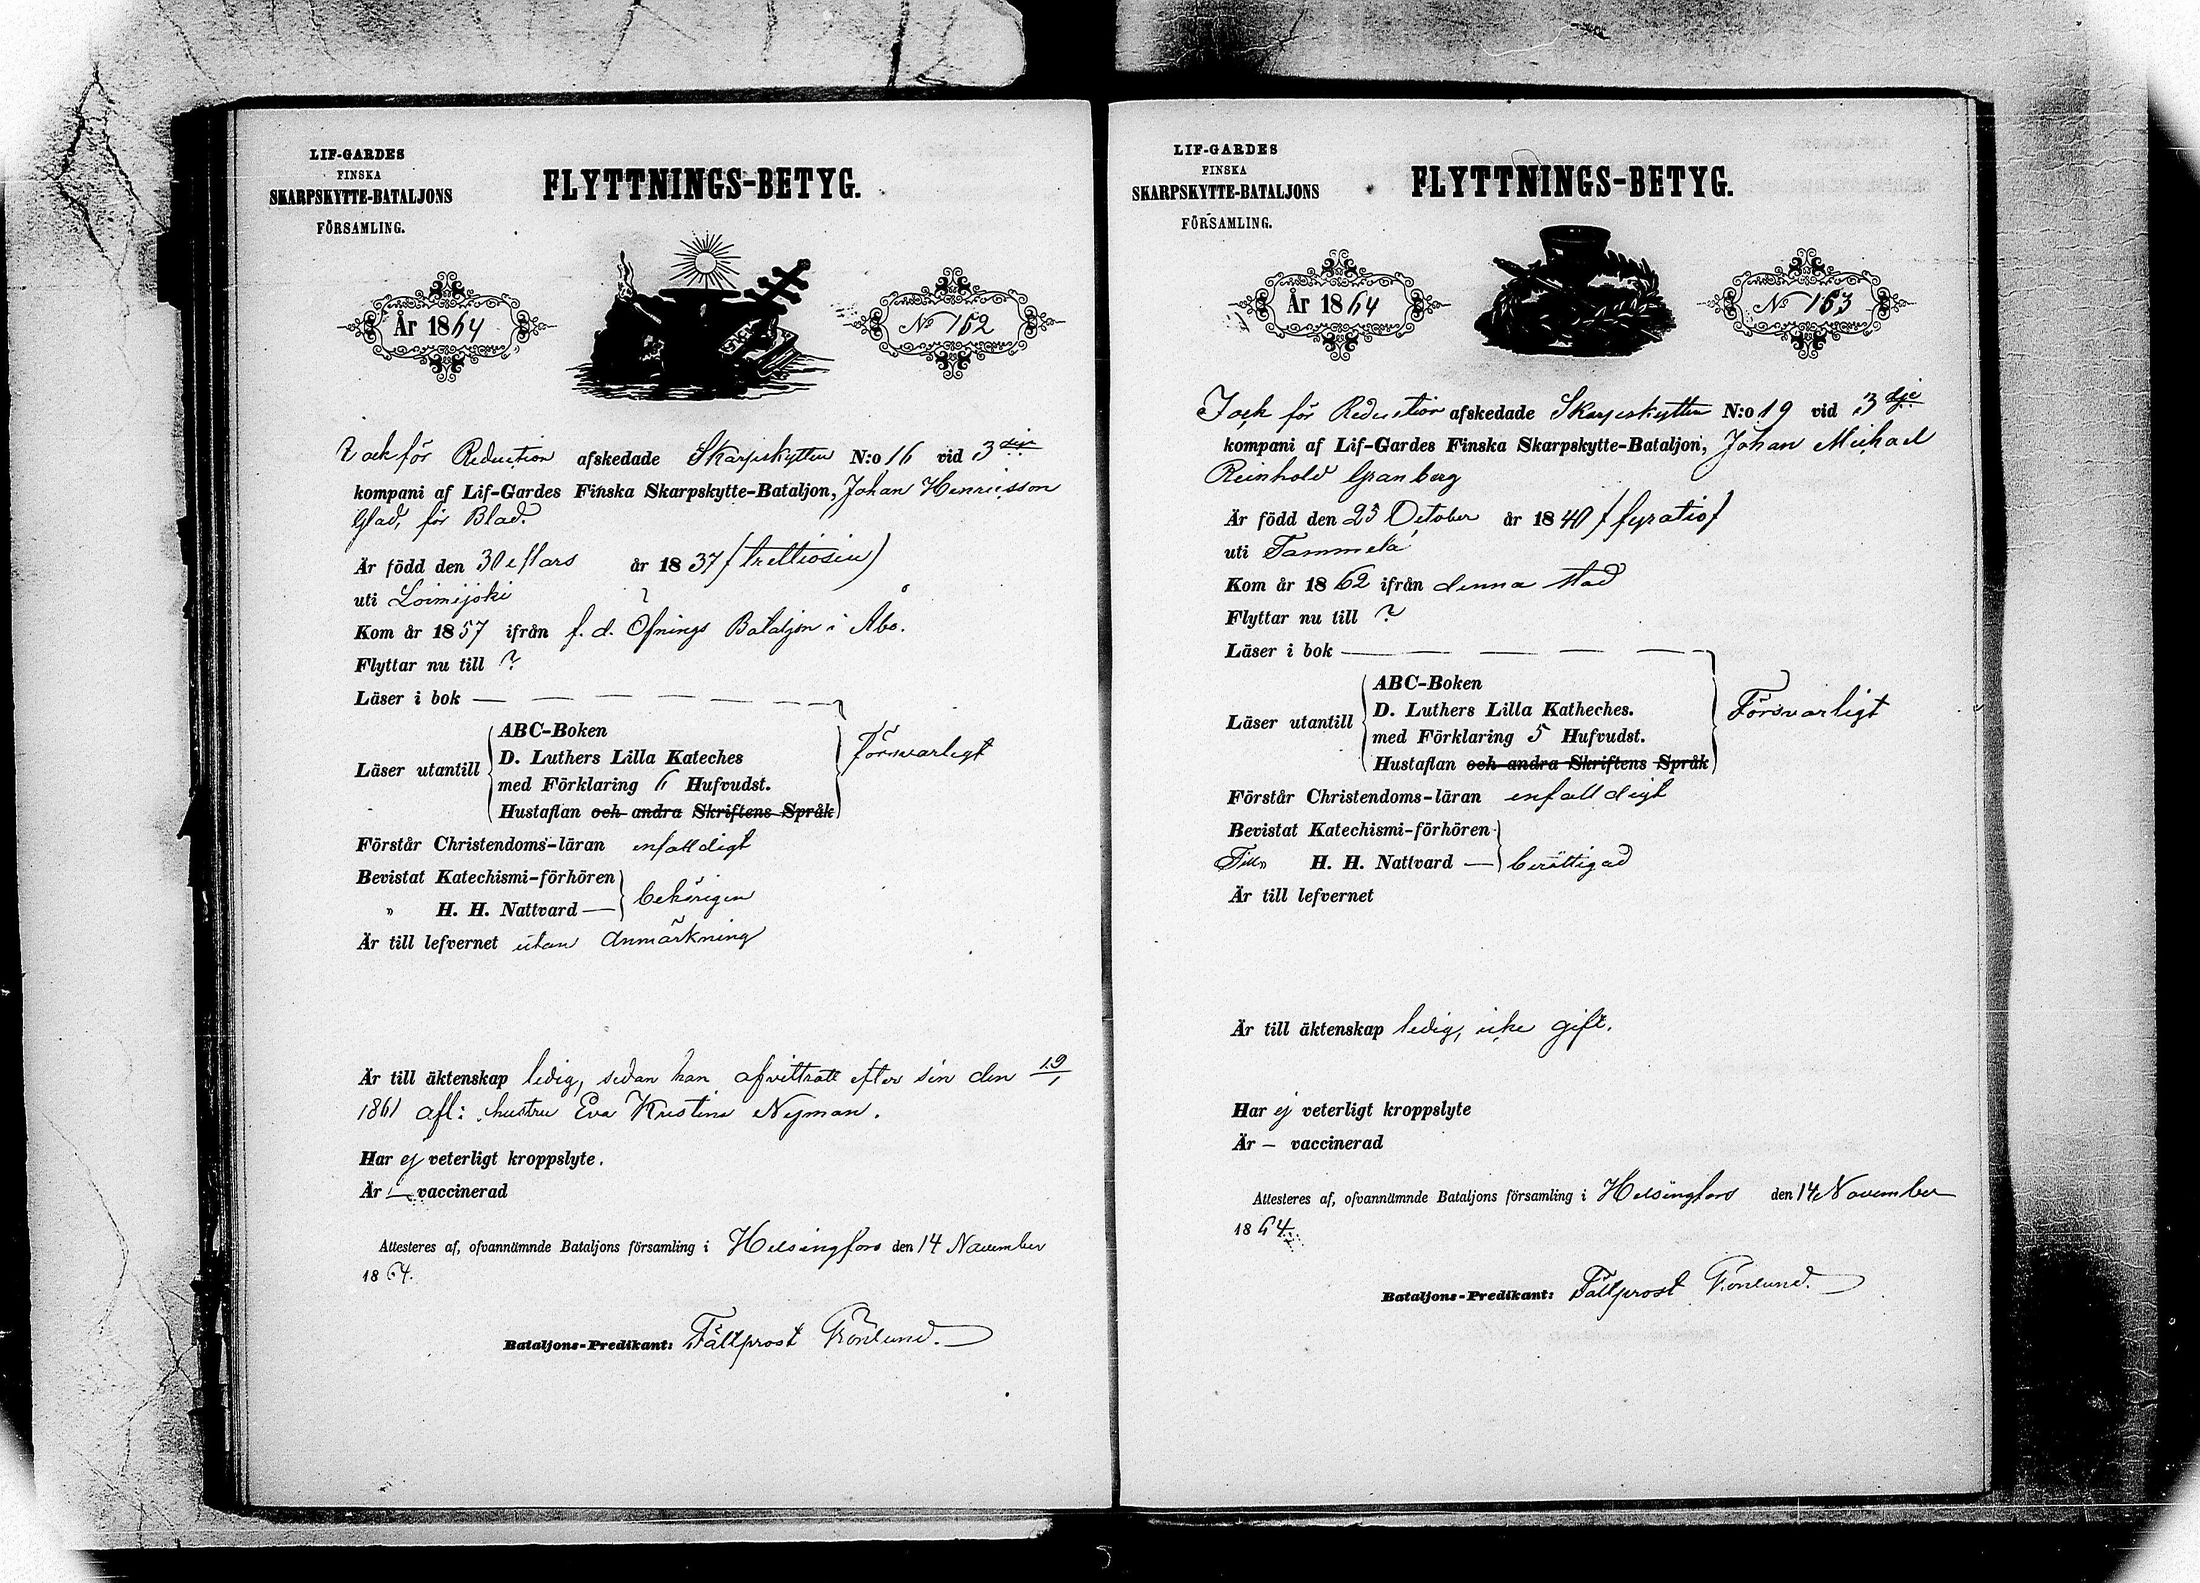 LIF-GARDES
FINSKA
SKARPSKYTTE-BATALJONS
FÖRSAMLING.
FLYTTNINGS-BETYG.
År 1864
No 162
för Reduction afskedade Skarpskytten N:o 16 vid 3
kompani af Lif-Gardes Finska Skarpskytte-Bataljon, Johan Henricsson
Glad, för Blad.
Är född den 30 Mars år 1837 (trettiosju)
uti Loimijoki
Kom år 1857 ifrån f. d. Öfnings Bataljon i Åbo.
Flyttar nu till ?
Läser i bok — — — — —
ABC-Boken
D. Luthers Lilla Kateches
Läser utantill
med Förklaring 6 Hufvudst.
Hustaflan och andra Skriftens Språk
Försvarligt
Förstår Christendoms-läran enfalldigt
Bevistat Katechismi-förhören
" H. H. Nattvard —
behörigen
Är till lefvernet utan Anmärkning
Är till äktenskap ledig, sedan han afvittrat efter sin den 19/1
1861 afl: hustru Eva Kristina Nyman.
Har ej veterligt kroppslyte.
Är — vaccinerad
Attesteres af, ofvannämnde Bataljons församling i Helsingfors den 14 November
1864.
Bataljons-Predikant: Fältprost Grönlund.
LIF-GARDES
FINSKA
SKARPSKYTTE-BATALJONS
FÖRSAMLING.
FLYTTNINGS-BETYG.
År 1864
No 163
för Reduction afskedade Skarpskytten N:o 19 vid 3dje
kompani af Lif-Gardes Finska Skarpskytte-Bataljon, Johan Michael
Reinhold Granberg
Är född den 25 October år 1840 (fyratio)
uti Tammela
Kom år 1862 ifrån denna stad
Flyttar nu till ?
Läser i bok — — — — —
ABC-Boken
D. Luthers Lilla Katheches.
Läser utantill
med Förklaring 5 Hufvudst.
Hustaflan och andra Skriftens Språk
Försvarligt
Förstår Christendoms-läran enfalldigt
Bevistat Katechismi-förhören
Till H. H. Nattvard —
berättigad
Är till lefvernet
Är till äktenskap ledig, icke gift.
Har ej veterligt kroppslyte
Är — vaccinerad
Attesteres af, ofvannämnde Bataljons församling i Helsingfors den 14 November
1864.
Bataljons-Predikant: Fältprost Grönlund.